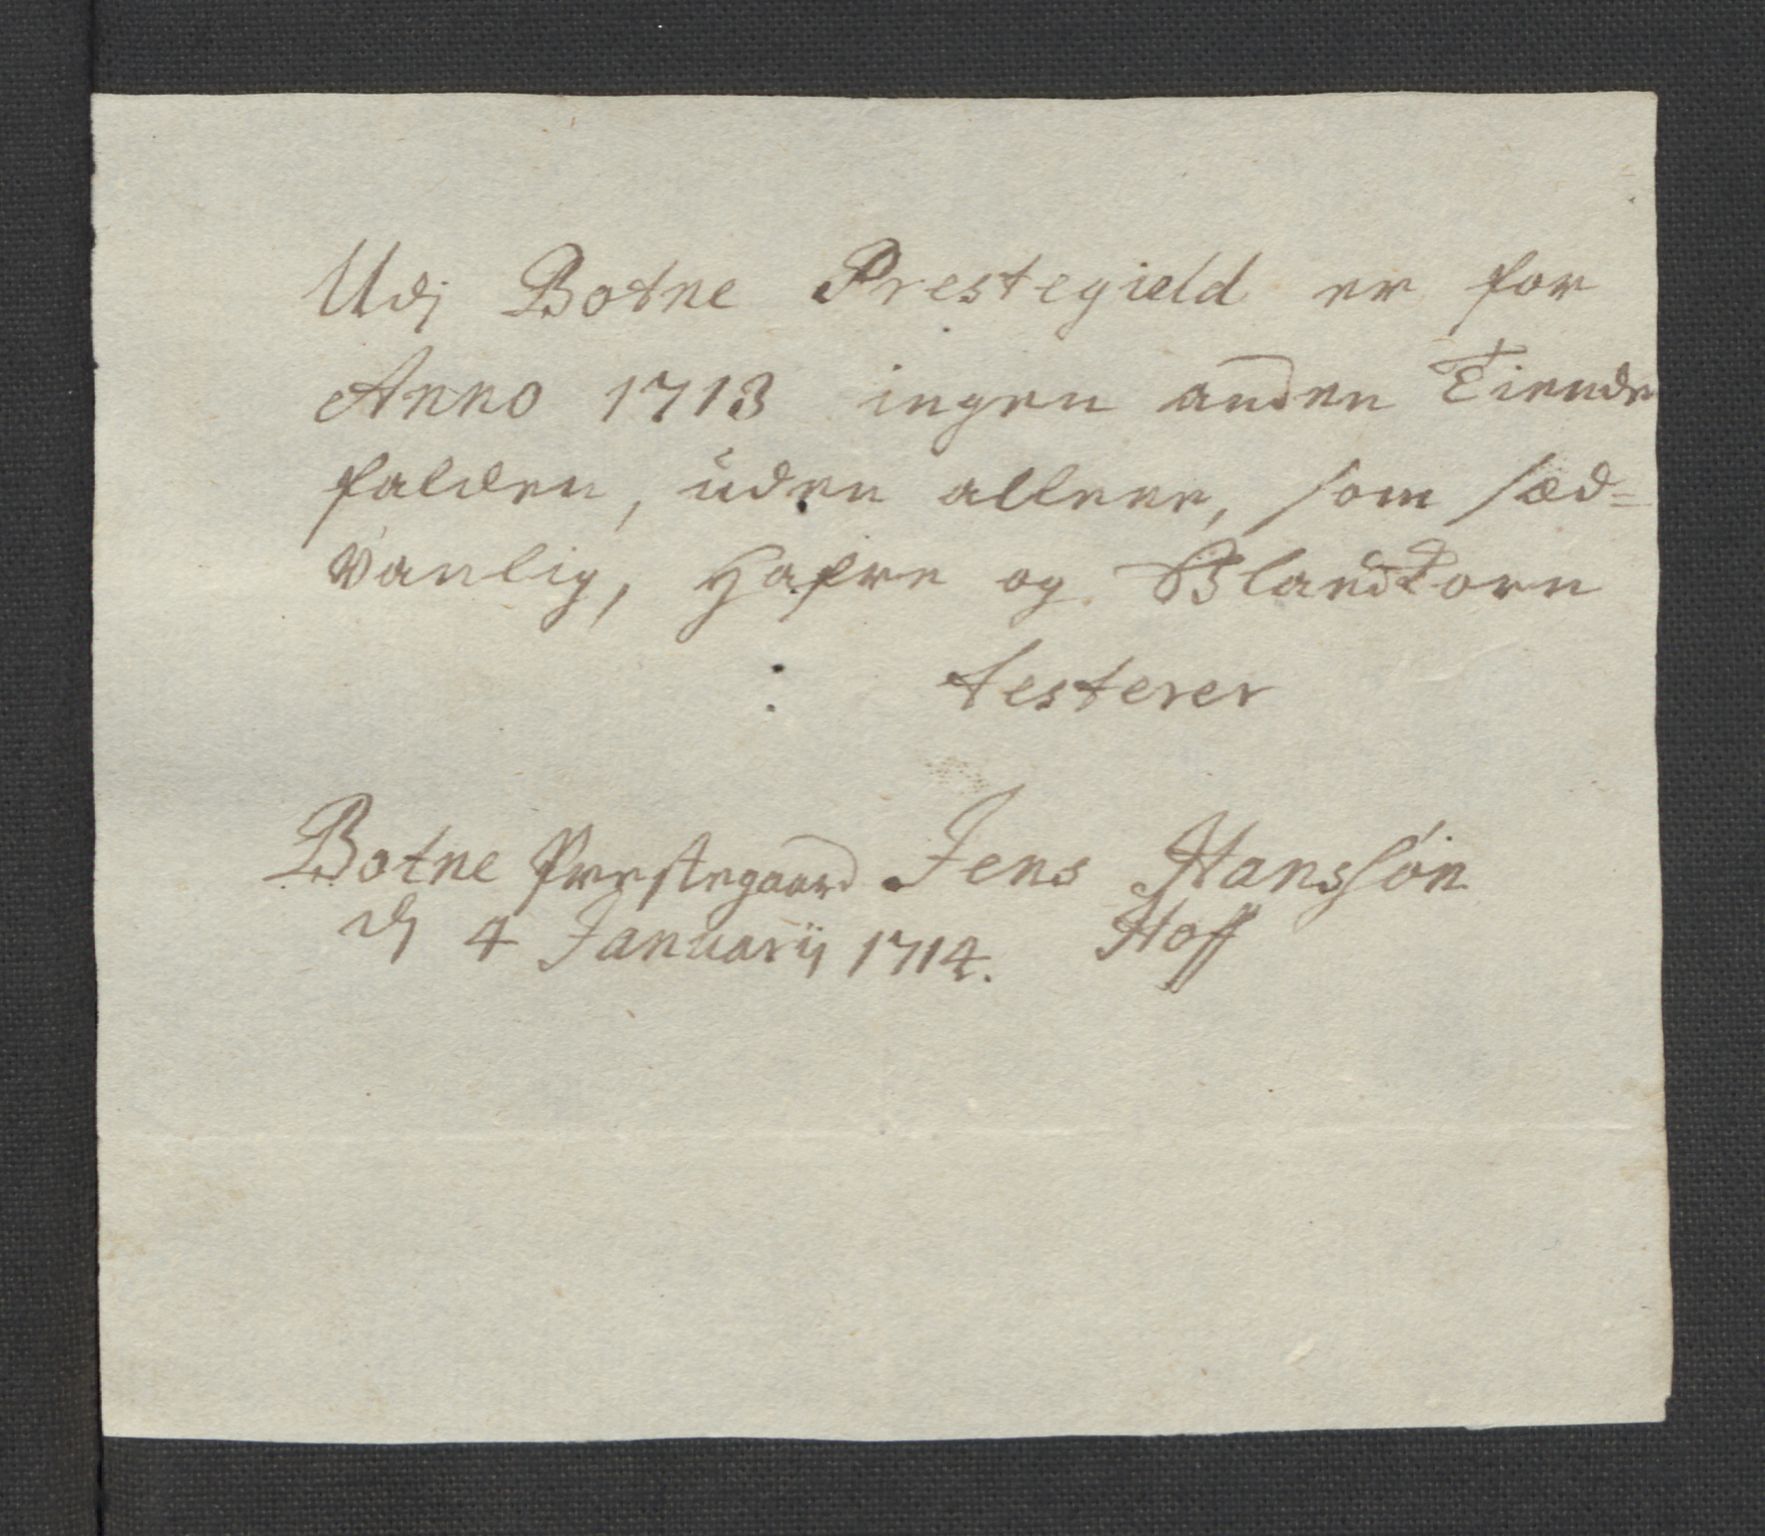 Udj Botne Prestegield er for
Anno 1713 ingen anden Tiende
falden, uden allene, som sæd=
vanlig, Hafre og Blandkorn
testerer
Botne Prestegaard Jens Hanssøn
dj 4 Januarij 1714. Hoff